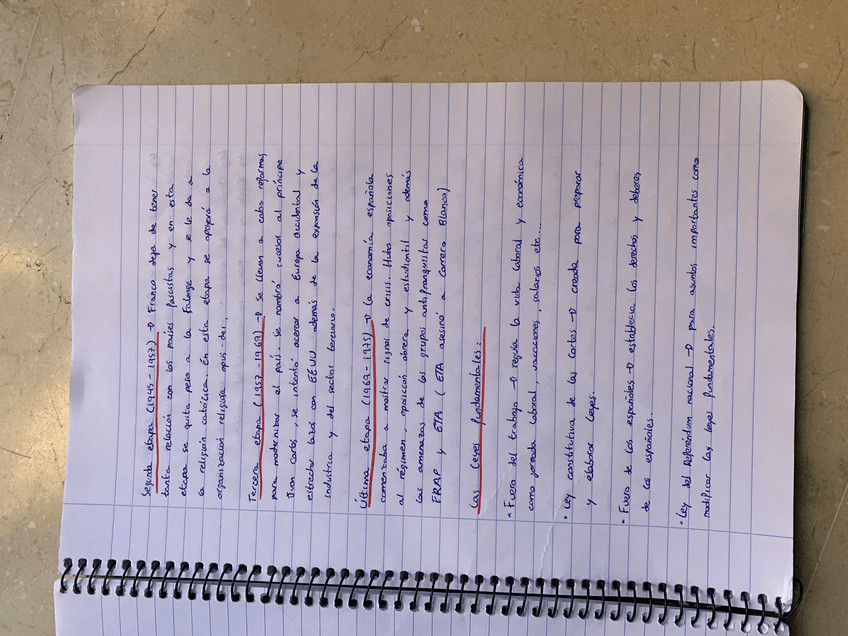 Segunda etapa (1945-1957) → Franco deja de tener
tanta relación con los países fascistas y en esta
etapa se quita peso a la Falange y se le da a
la religión católica. En esta etapa se apoyará a la
organización religiosa opus-dei.
Tercera etapa (1957-1969) → Se llevan a cabo reformas
para modernizar el país. Se nombró sucesor al príncipe
Juan Carlos, se intentó acercar a Europa occidental y
estrechar lazos con EEUU además de la expansión de la
industria y del sector terciario.
Última etapa (1969-1975) → la economía española
comenzaba a mostrar signos de crisis. Hubo oposiciones
al régimen, oposición obrera y estudiantil y además
las amenazas de los grupos antifranquistas como
FRAP y ETA (ETA asesinó a Carrero Blanco)
Las leyes fundamentales:
• Fuero del trabajo → regula la vida laboral y económica
como jornada laboral, vacaciones, salarios etc...
• Ley constitutiva de las cortes → creada para preparar
y elaborar leyes.
• Fuero de los españoles → establecía los derechos y deberes
de los españoles.
• Ley del Referéndum nacional → para asuntos importantes como
modificar las leyes fundamentales.